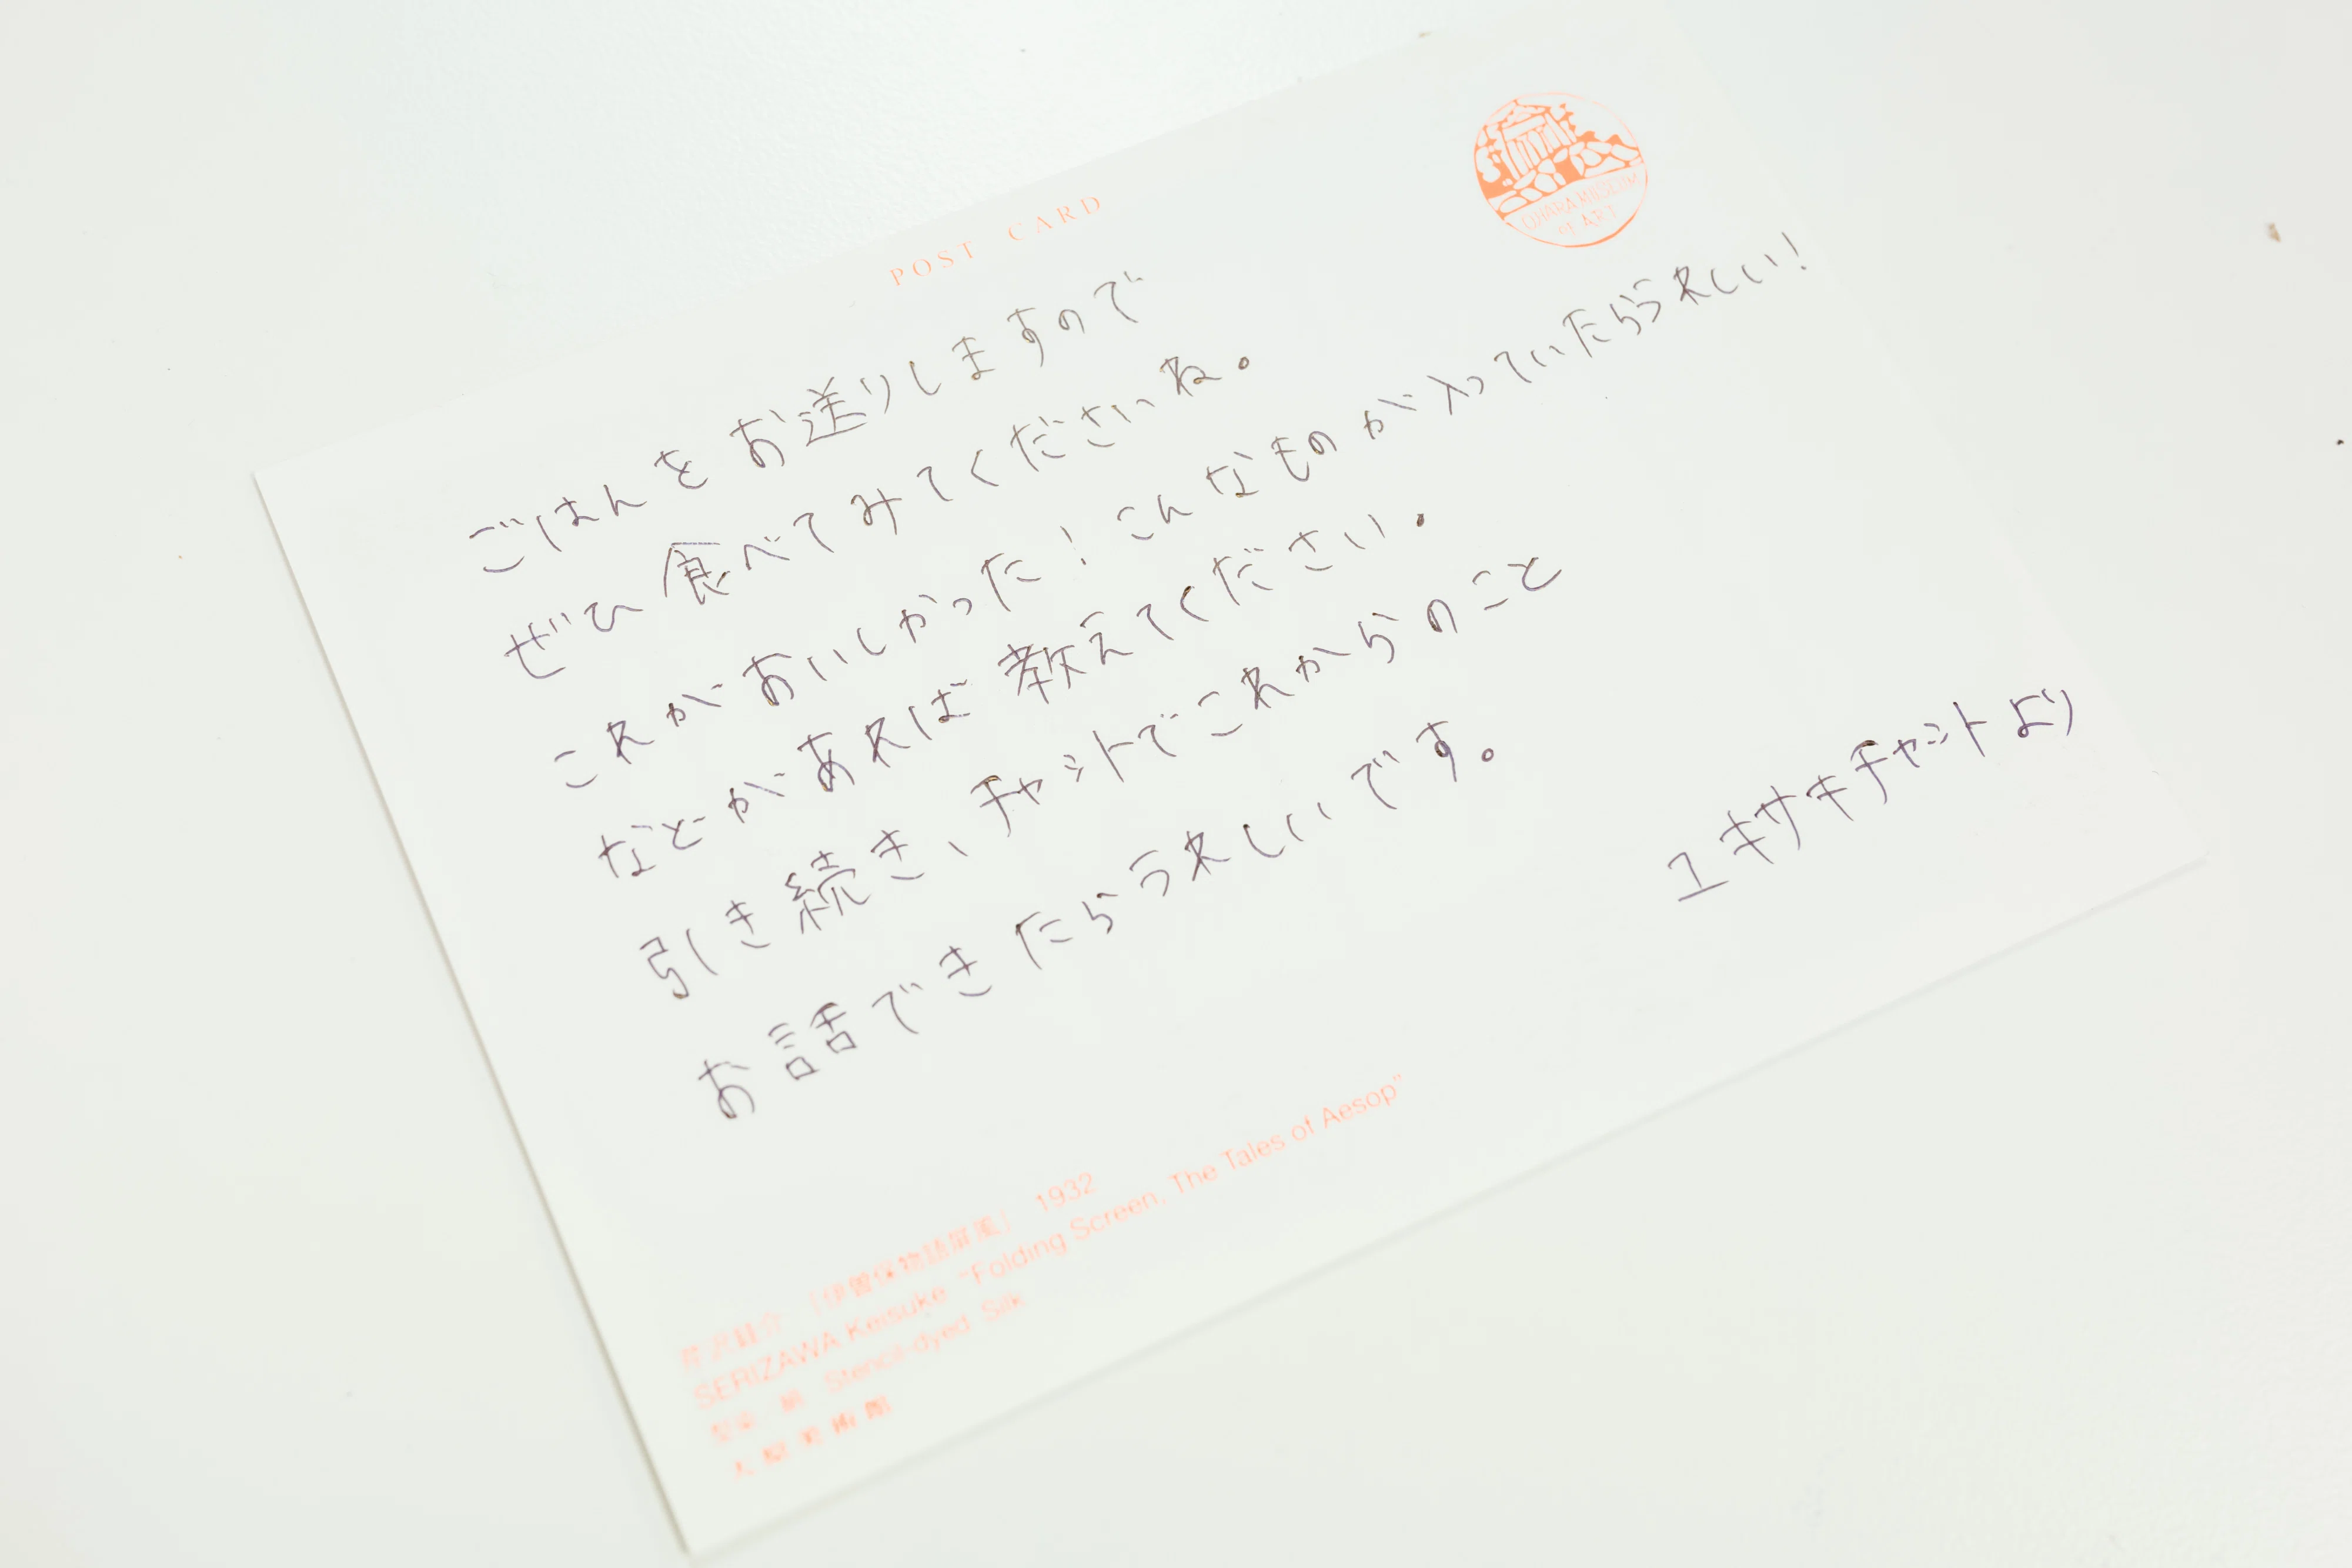 POST CARD
OHARA MUSEUM
of ART
ごはんをお送りしますので
ぜひ食べてみてくださいね。
これがおいしかった！こんなものが入っていたらうれしい！
などがあれば教えてください。
引き続き、チャットでこれからのこと
お話できたらうれしいです。
ユキサキチャットより
芹沢銈介 「伊曽保物語屏風」 1932
SERIZAWA Keisuke "Folding Screen, The Tales of Aesop"
型染 絹 Stencil-dyed Silk
大原美術館